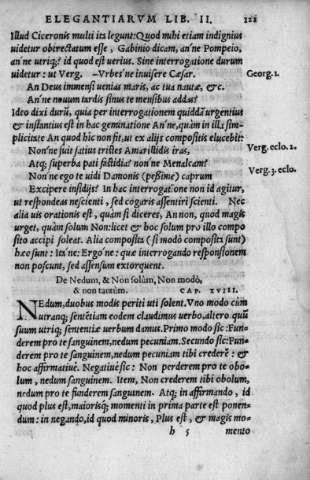 ELEGANTIARVM LIB. II. 121
Illud Ciceronis multi ita legunt: Quod mihi etiam indignius
uidetur obtrectatum esse, Gabinio dicam, an'ne Pompeio,
an'ne utriq;? id quod est uerius. Sine interrogatione durum
uidetur: ut Verg. –Vrbes'ne inuisere Cæsar. Georg. 1.
An Deus immensi uenias maris, ac tua nautæ, &c.
An'ne nouum tardis sidus te mensibus addas?
Ideo dixi durũ, quia per interrogationem quiddã urgentius
& instantius est in hac geminatione An'ne, quàm in illa sim-
plici: siue An quod hic non fit, ut ex alijs compositis elucebit:
Non'ne fuit satius tristes Amaryllidis iras, Verg. eclo. 2.
Atq; superba pati fastidia? non'ne Menalcam?
Non'ne ego te uidi Damonis (peßime) caprum Verg. 3. eclo.
Excipere insidijs? In hac interrogatiõne non id agitur,
ut respondeas nescienti, sed cogaris assentiri scienti. Nec
alia uis orationis est, quàm si diceres, An non, quod magis
urget, quàm solum Non: licet & hoc solum pro illo compo
sito accipi soleat. Alia composita (si modò composita sunt)
hæc sunt: Ita'ne: Ergo'ne: quæ interrogando responsionem
non poscunt, sed assensum extorquent.
De Nedum, & Non solùm, Non modò,
& non tantùm. CAP. XVIII.
NEdum, duobus modis periti uti solent. Vno modo cùm
utranq; sentẽtiam eodem claudimus uerbo, altero quũ
suum utriq; sententiæ uerbum damus. Primo modo sic: Fun-
derem pro te sanguinem, nedum pecuniam. Secundo sic: Fun-
derem pro te sanguinem, nedum pecuniam tibi crederẽ: &
hoc affirmatiuè. Negatiuè sic: Non perderem pro te obo-
lum, nedum sanguinem. Item, Non crederem tibi obolum,
nedum pro te funderem sanguinem. Atq; in affirmando, id
quod plus est, maiorisq; momenti in prima parte est ponen-
dum: in negando, id quod minoris, Plus est, & magis mo-
h 5 mento